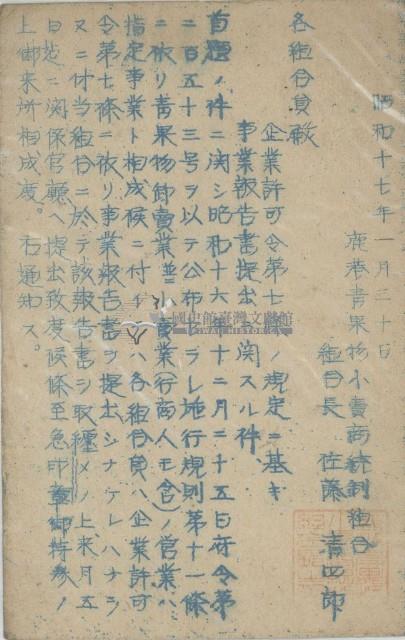 昭和十七年一月三十日
鹿港青果物小賣商統制組合
組合長 佐藤清四郎
各組合員殿
企業許可令第七條ノ規定ニ基キ
事業報告書提出ニ関スル件
首題ノ件ニ関シ昭和十六年十二月二十五日府令第
二百五十三号ヲ以テ公布セラレ施行規則第十一條
ニ依リ青果物卸賣業並ニ小賣業(行商人モ含ム)ノ営業ハ
指定事業ト相成候ニ付テハ各組合員ハ企業許可
令第七條ニ依リ事業報告書ヲ提出シナケレハナラ
ス ニ付当組合ニ於テ該報告書ヲ取纏メノ上来月五
日迄ニ関係官廳ヘ提出致度候條至急印章御持参ノ
上御来所相成度。右通知ス。
國史館臺灣文獻館